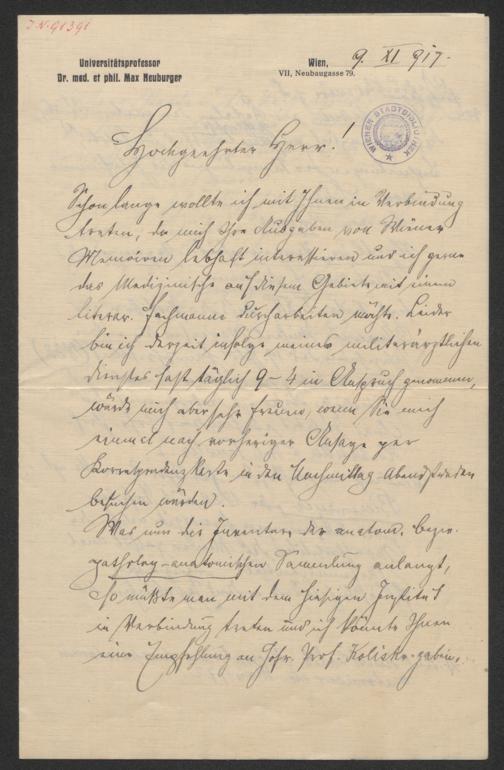 J.N. 91391
Universitätsprofessor
Dr. med. et phil. Max Neuburger
Wien, 9. XI 917.
VII, Neubaugasse 79.
WIENER STADTBIBLIOTHEK
Hochgeehrter Herr!
Schon lange wollte ich mit Ihnen in Verbindung
treten, da mich Ihre Ausgaben von Wiener
Memoiren lebhaft interessieren und ich gerne
das Medizinische auf diesem Gebiete mit einem
literar. Fachmanne durcharbeiten möchte. Leider
bin ich derzeit infolge meines militärärztlichen
Dienstes fast täglich 9–4 in Anspruch genommen,
würde mich aber sehr freuen, wenn Sie mich
einmal nach vorheriger Ansage per
Korrespondenzkarte in den Nachmittag-Abendstunden
besuchen würden.
Was nun die Inventare der anatom. bezw.
patholog-anatomischen Sammlung anlangt,
so müßte man mit dem hiesigen Institut
in Verbindung treten und ich könnte Ihnen
eine Empfehlung an Hofr. Prof. Kolisko geben,